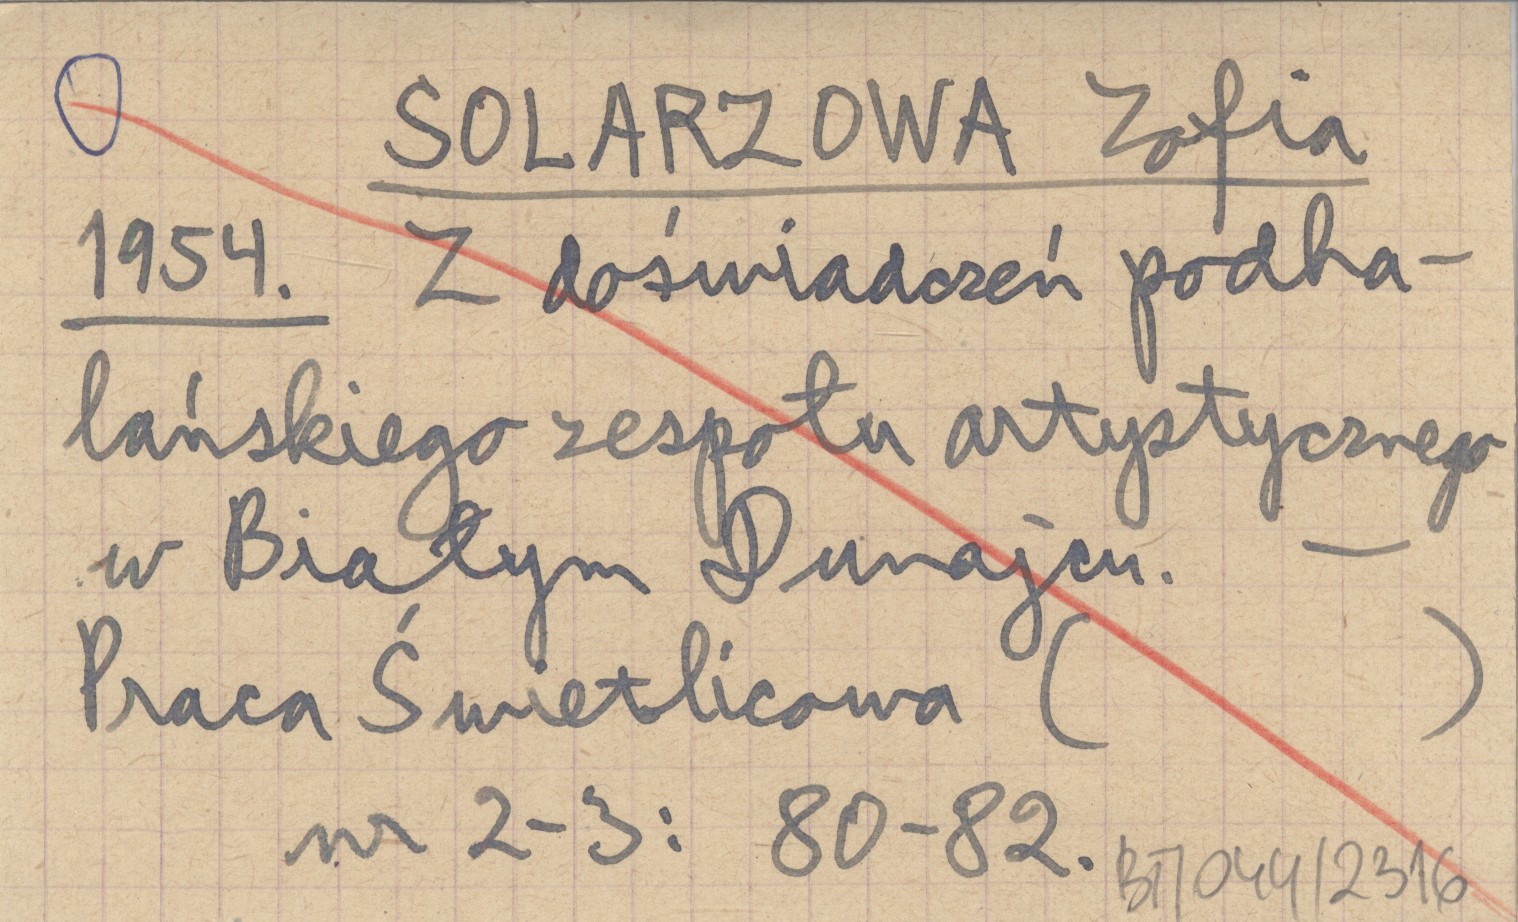 SOLARZOWA Zofia
1954. Z doświadczeń podha-
lańskiego zespołu artystycznego
w Białym Dunajcu. —
Praca Świetlicowa ( )
nr 2-3: 80-82.
BT/044/2316